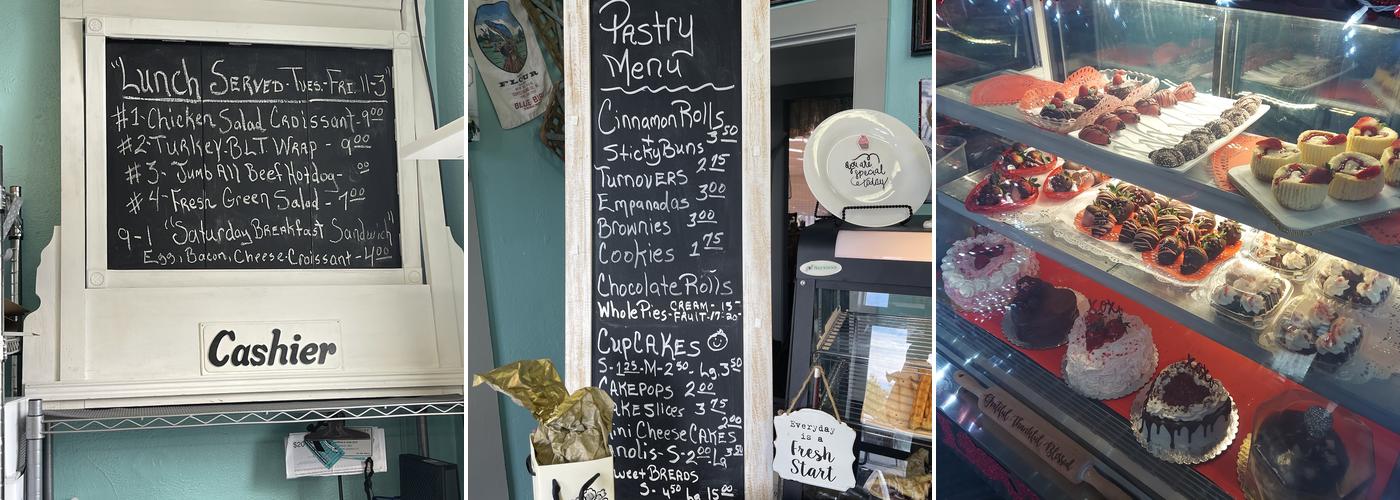 "Lunch Served-Tues.-Fri. 11-3"
#1-Chicken Salad Croissant-9.00
#2-Turkey-BLT Wrap - 9.00
#3- Jumb All Beef Hotdog- .00
#4-Fresh Green Salad - 7.00
9-1 "Saturday Breakfast Sandwich"
Egg, Bacon, Cheese-Croissant-4.00
Cashier
$20
FLOUR
BLUE BIRD
Pastry
Menu
Cinnamon Rolls 3.50
+
Sticky Buns
Turnovers 2.75
Empanadas 3.00
Brownies 3.00
Cookies 1.75
Chocolate Rolls
Whole Pies- CREAM-15-
FRUIT-17-20-
CupCAKES
S-1.25-M-2.50-Lg.3.50
CAKEPOPS 2.00
AKE Slices 3.75
ini Cheese CAKES 2.00
nolis-S-2.00-Lg 3.50
weet BREADS
S- 4.50 Lg 15.00
you are
special
today
Everyday
is a
Fresh
Start
XOXO
Grateful Thankful Blessed